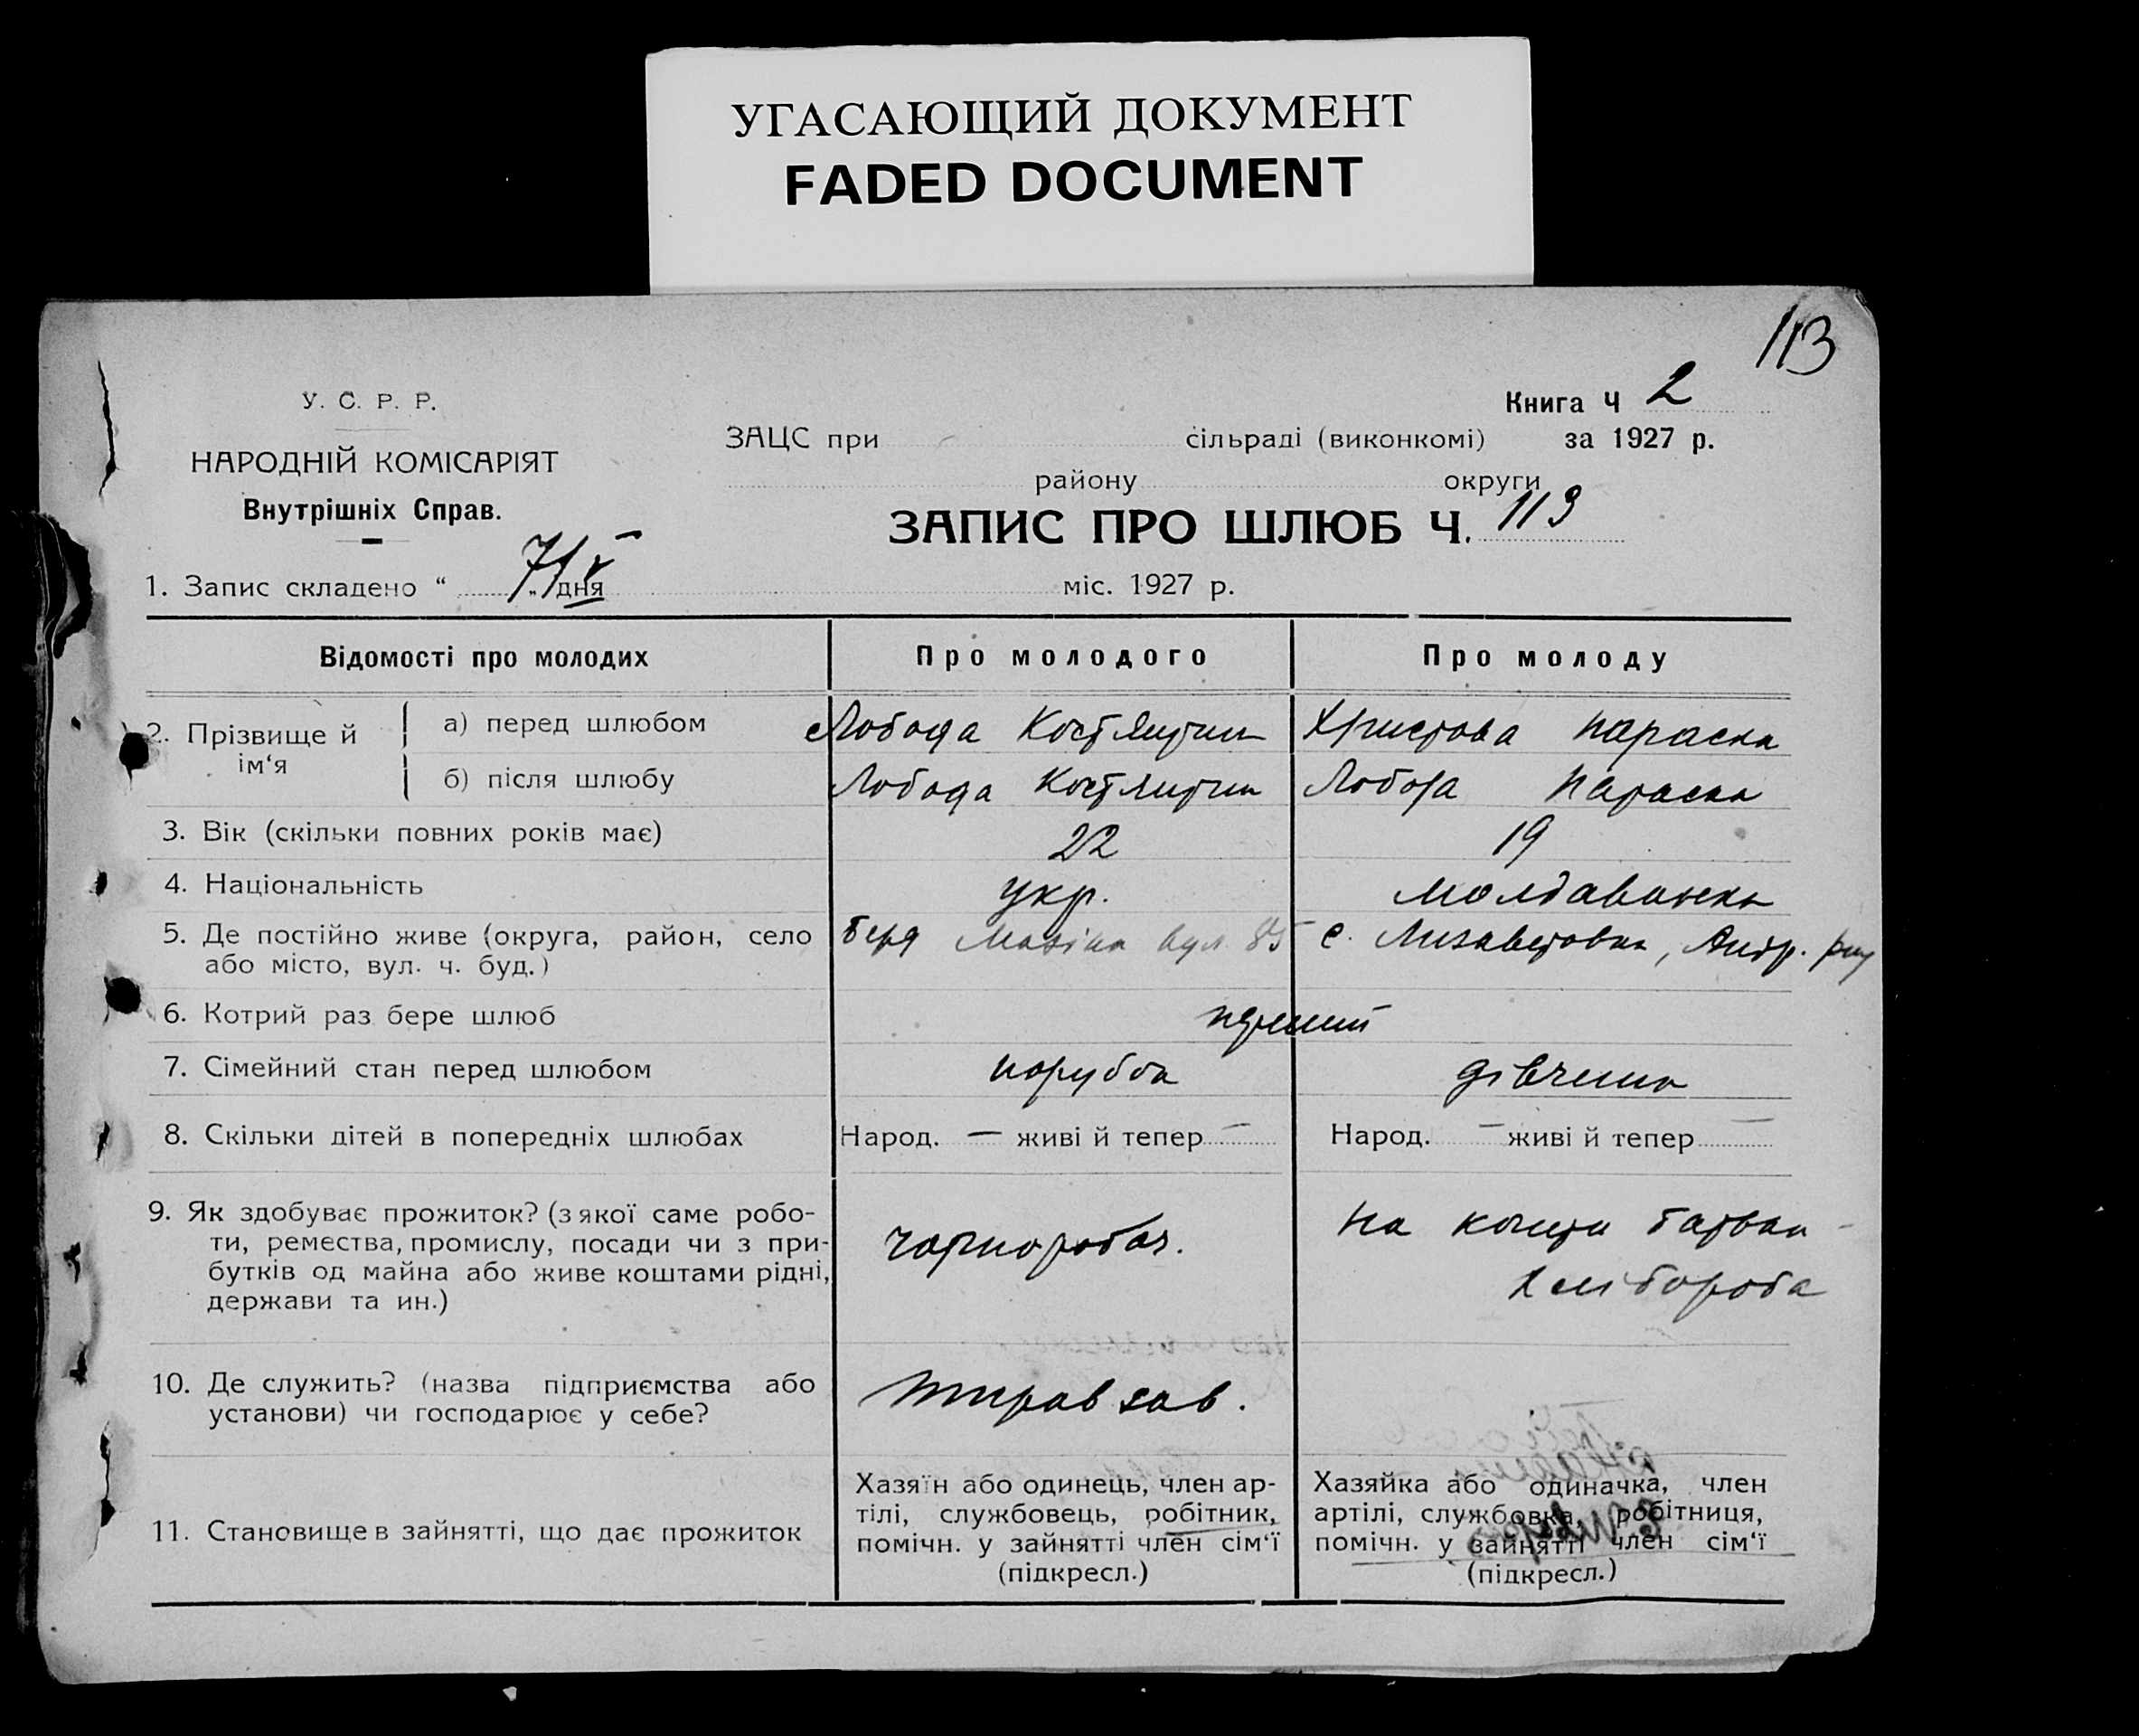 УГАСАЮЩИЙ ДОКУМЕНТ
FADED DOCUMENT
113
У. С. Р. Р.
НАРОДНІЙ КОМІСАРІЯТ
Внутрішніх Справ.
Книга Ч 2
ЗАЦС при сільраді (виконкомі) за 1927 р.
району округи
ЗАПИС ПРО ШЛЮБ Ч. 113
1. Запис складено “ 7/V „ дня міс. 1927 р.
Відомості про молодих Про молодого Про молоду
2. Прізвище й ім‘я
а) перед шлюбом Лобода Костянтин Христова Параска
б) після шлюбу Лобода Костянтин Лобода Параска
3. Вік (скільки повних років має) 22 19
4. Національність укр. молдаванка
5. Де постійно живе (округа, район, село Берд вул. 85 с. Лизаветовка, Андр.
або місто, вул. ч. буд.)
6. Котрий раз бере шлюб перший
7. Сімейний стан перед шлюбом парубок дівчина
8. Скільки дітей в попередніх шлюбах Народ. — живі й тепер — Народ. — живі й тепер —
9. Як здобуває прожиток? (з якої саме робо-
ти, ремества, промислу, посади чи з при-
бутків од майна або живе коштами рідні,
держави та ин.)
чорнороб.
на кошти батька -
хлібороба
10. Де служить? (назва підприємства або
установи) чи господарює у себе?
зав.
11. Становище в зайнятті, що дає прожиток
Хазяїн або одинець, член ар-
тілі, службовець, робітник,
помічн. у зайнятті член сім‘ї
(підкресл.)
Хазяйка або одиначка, член
артілі, службовка, робітниця,
помічн. у зайнятті член сім‘ї
(підкресл.)